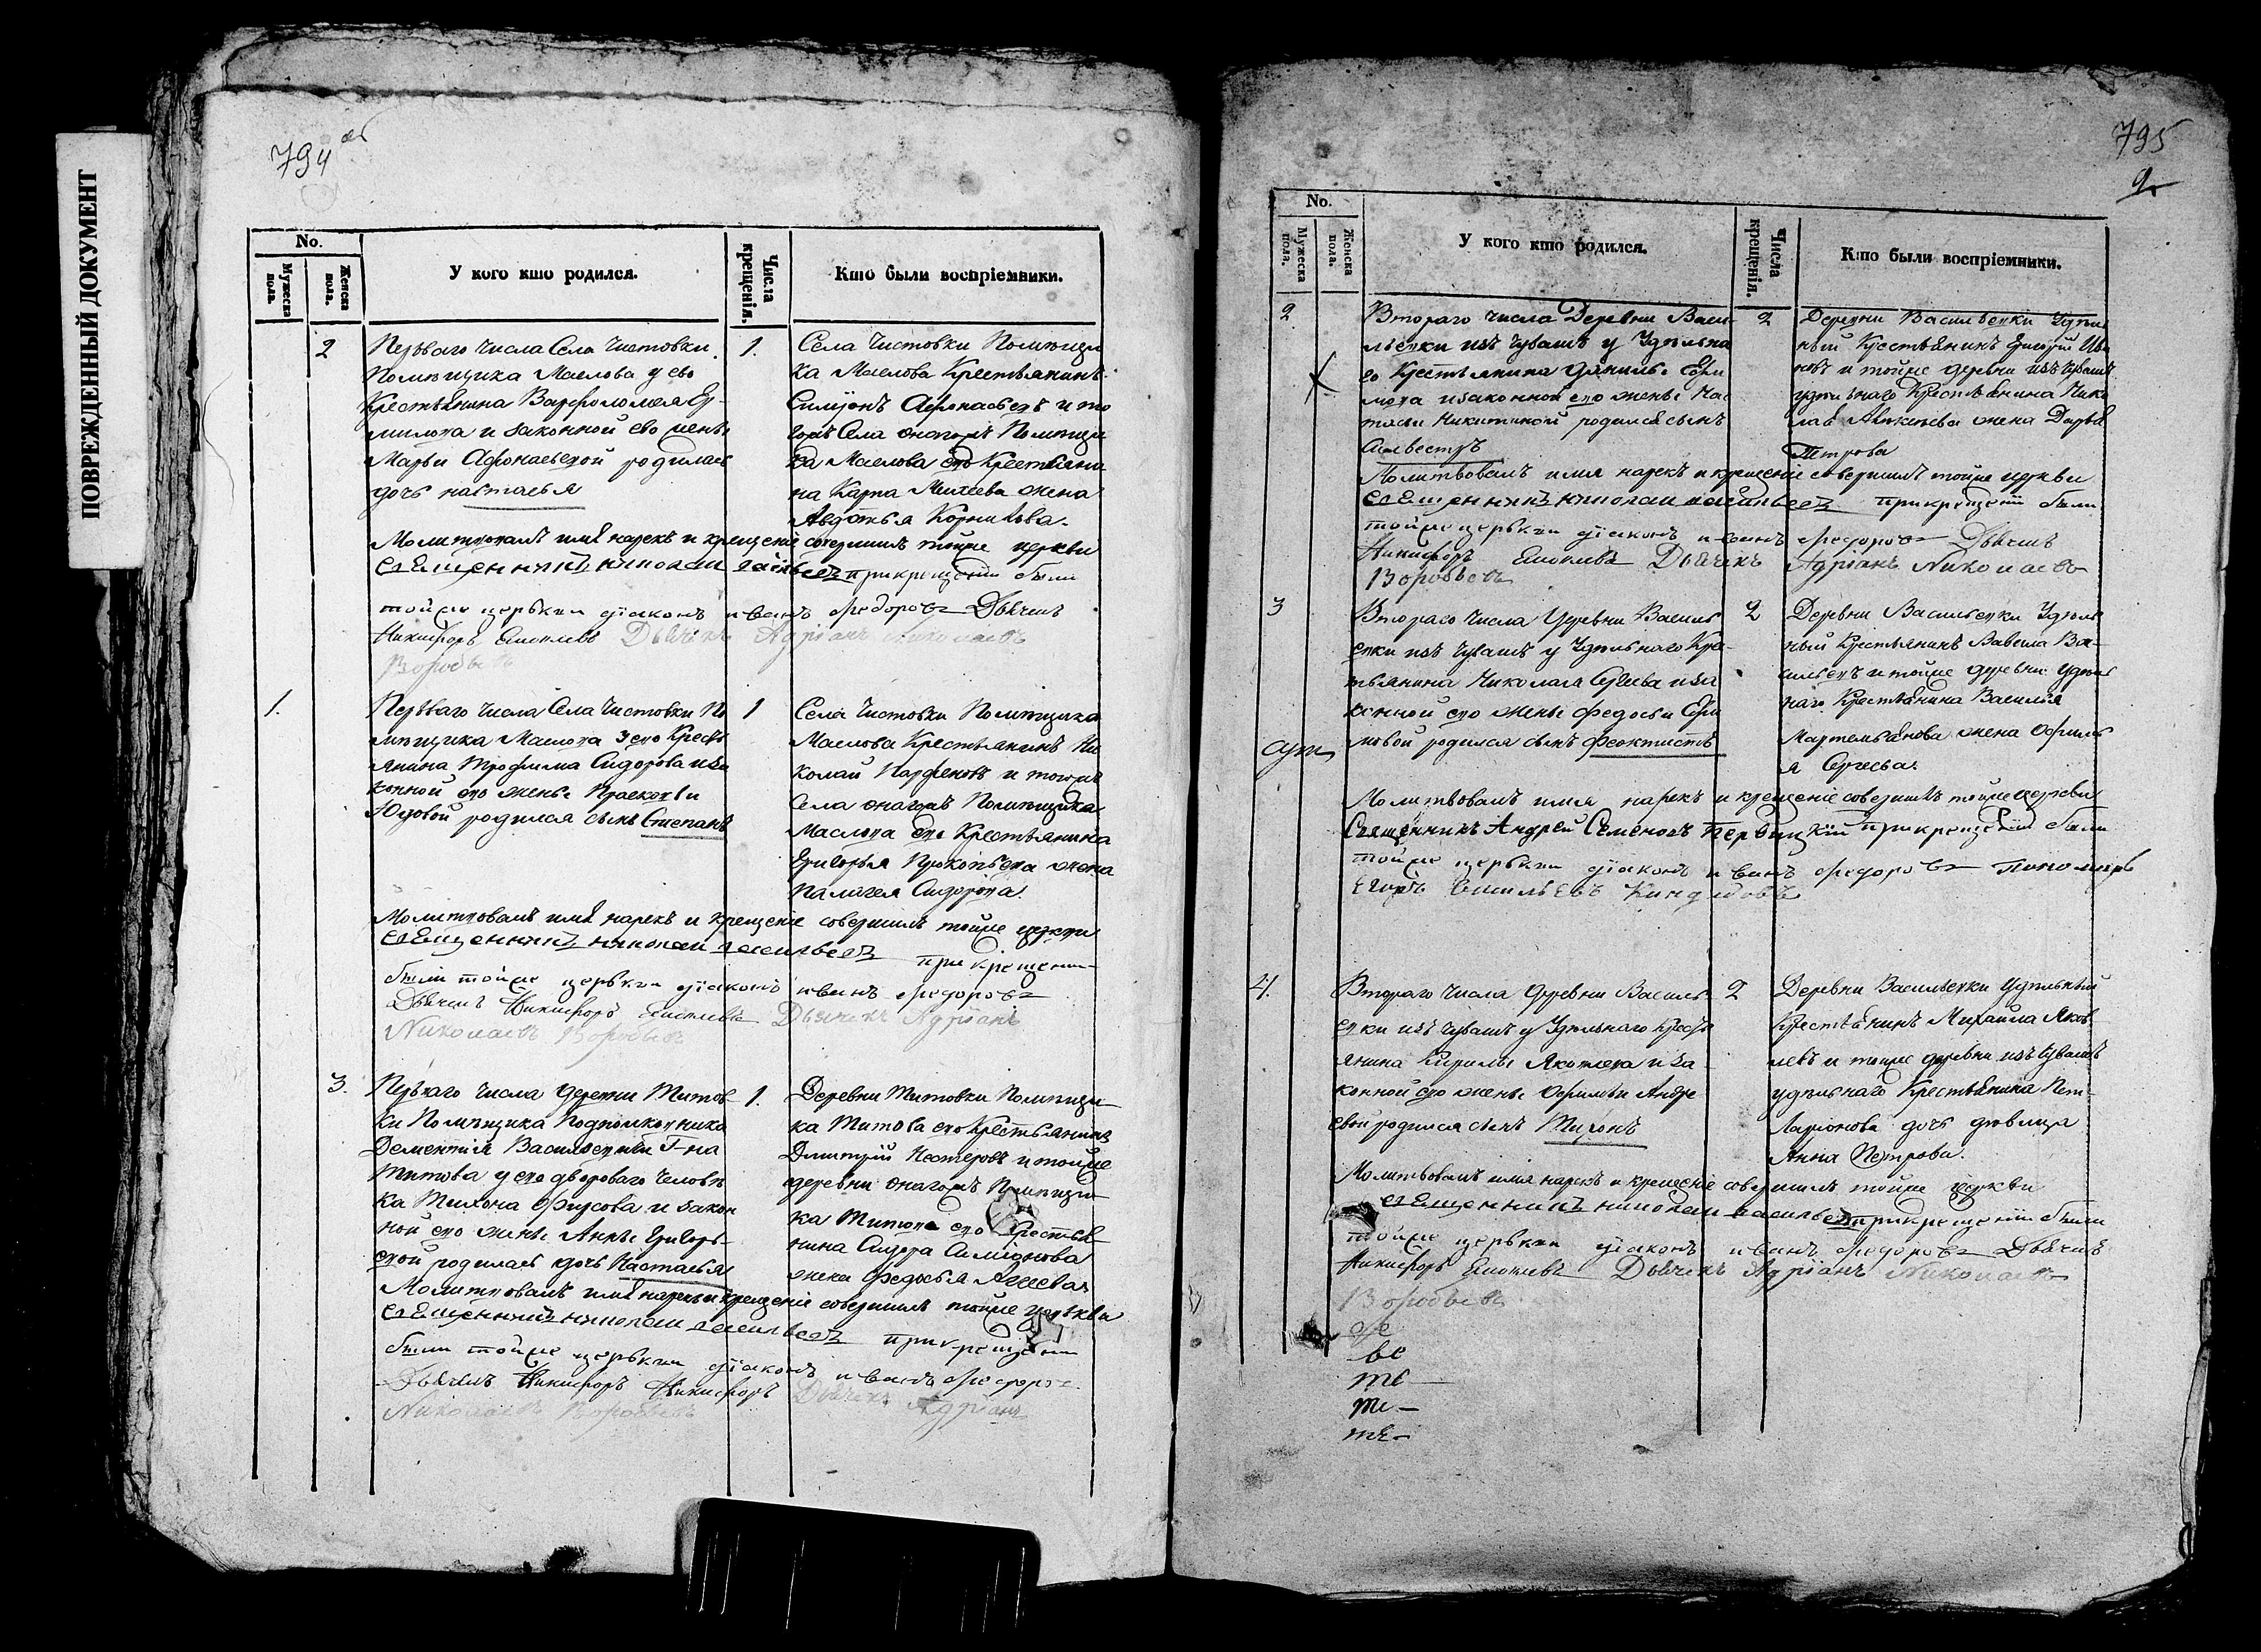 ПОВРЕЖДЕННЫЙ ДОКУМЕНТ
794 об
No.
Мужеска пола.
Женска пола.
У кого кто родился.
Числа крещенія.
Кто были воспріемники.
2
Перваго числа Села Чистовки
Помѣщика Маслова у ево
Крестьянина Варфоломея Ер-
милова и законной ево жены
Марьи Афонасьевой родилась
дочь настасья
1.
Села Чистовки Помѣщи
ка Маслова Крестьянинъ
Симіонъ Афонасьевъ и то
гожъ Села онагожъ Помѣщи
ка Маслова его крестьяни
на Карпа Михеева жена
Авдотья Корнилова.
Молитвовалъ имя нарекъ и крещеніе совершилъ тойже церкви
священникъ николай васильевъ при крещеніи были
тойже церькви діаконъ иванъ федоровъ Дьячекъ
Никифоръ Дьячекъ Адріанъ Николаевъ
Воробьевъ
1.
Перваго числа Села Чистовки По
мѣщика Маслова у его Кресть
янина Трофима Сидорова и за
конной его жены Прасковьи
родился сынъ Степанъ
1
Села Чистовки Помѣщика
Маслова Крестьянинъ Ни
колай Парфеновъ и тогожъ
Села онагожъ Помѣщика
Маслова его Крестьянина
Григорья Прокопьева жена
Палагея Сидорова.
Молитвовалъ имя нарекъ и крещеніе совершилъ тойже церкви
священникъ николай васильевъ при крещеніи
были тойже церькви діаконъ иванъ федоровъ
Дьячекъ Никифоръ Дьячекъ Адріанъ
Николаевъ Воробьевъ
3.
Перваго числа деревни Титов
ки Помѣщика Подполковника
Дементія Васильевича Г-на
Титова у его двороваго человѣ
ка Тихона Фирсова и закон
ной его жены Анны Григорь-
евой родилась дочь Настасья
1.
Деревни Титовки Помѣщи
ка Титова его Крестьянинъ
Дмитрій Нестеровъ и тойже
деревни онагожъ Помѣщи
ка Титова его Крестья
нина Сидора Симіонова
жена Федосья
Молитвовалъ имя нарекъ и крещеніе совершилъ тойже церькви
священникъ николай васильевъ при крещеніи
были тойже церькви діаконъ иванъ федоровъ
Дьячекъ Никифоръ Никифоръ Дьячекъ Адріанъ
Николаевъ Воробьевъ
795
9
No.
Мужеска пола.
Женска пола.
У кого кто родился.
Числа крещенія.
Кто были воспріемники.
2.
Втораго числа Деревни Васи-
льевки изъ чувашъ у Удѣльна
го Крестьянина Данилы
и законной его жены На
тальи Никитиной родился сынъ
Силвестръ
2
Деревни Васильевки Удѣль
ный Крестьянинъ Григорій Ива
новъ и тойже деревни изъ чувашъ
удѣльнаго Крестьянина Нико
лая жена Дарья
Петрова
Молитвовалъ имя нарекъ и крещеніе совершилъ тойже церкви
священникъ николай васильевъ при крещеніи были
тойже церькви діаконъ иванъ федоровъ Дьячекъ
Никифоръ Дьячекъ Адріанъ Николаевъ
Воробьевъ
3
Втораго числа Деревни Василь
евки изъ чувашъ у Удѣльнаго Кре-
стьянина Николая Сергеева и за
конной его жены Федосьи
родился сынъ Феоктистъ
2
Деревни Васильевки Удѣль
ный Крестьянинъ Ва-
сильевъ и тойже деревни удѣль
наго Крестьянина Василья
Мартемьянова жена Офимь
я Сергеева.
Молитвовалъ имя нарекъ и крещеніе совершилъ тойже церкви
Священникъ Андрей Семеновъ при крещеніи были
тойже церькви діаконъ иванъ федоровъ пономарь
Егоръ Васильевъ
4.
Втораго числа деревни Василь
евки изъ чувашъ у Удѣльнаго Кресть
янина Кирилы Яковлева и за
конной его жены Офимьи Андре
евой родился сынъ Тихонъ
2
Деревни Васильевки Удѣльный
Крестьянинъ Михайла Яков
левъ и тойже деревни изъ чувашъ
удѣльнаго Крестьянина Пет-
Ларіонова дочь дѣвица
Анна Петрова.
Молитвовалъ имя нарекъ и крещеніе совершилъ тойже церкви
священникъ николай васильевъ при крещеніи были
тойже церькви діаконъ иванъ федоровъ Дьячекъ
Никифоръ Дьячекъ Адріанъ Николаевъ
Воробьевъ
ве
те